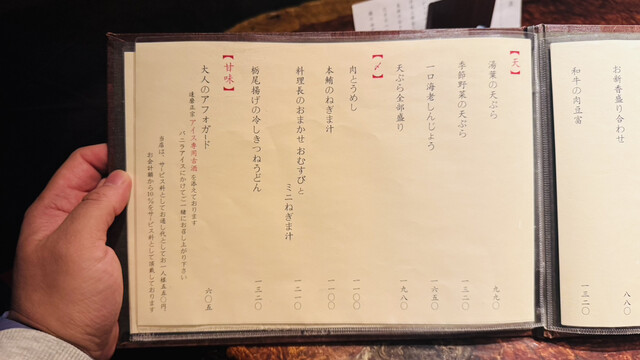 お新香盛り合わせ
八八〇
和牛の肉豆富
一三二〇
【天】
湯葉の天ぷら
九九〇
季節野菜の天ぷら
一三二〇
一口海老しんじょう
一六五〇
天ぷら全部盛り
一九八〇
【〆】
肉とうめし
一一〇〇
本鮪のねぎま汁
一一〇〇
料理長のおまかせ おむすびと
ミニねぎま汁
一二一〇
栃尾揚げの冷しきつねうどん
一三二〇
【甘味】
大人のアフォガード
六〇五
達磨正宗 アイス専用古酒 を添えております
バニラアイスにかけてご一緒にお召し上がり下さい
当店は、サービス料としてお通し代としてお一人様五五〇円
お会計額から10%をサービス料として頂戴しております